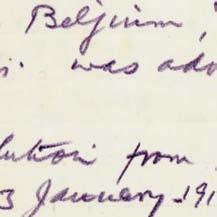 Belgium,
was ado
lution from
3 January 191